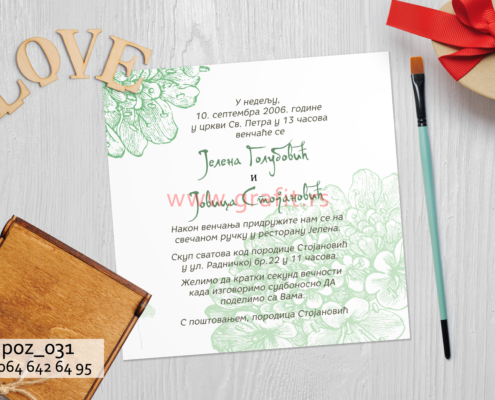 LOVE
У недељу,
10. септембра 2006. године
у цркви Св. Петра у 13 часова
венчаће се
Јелена Голубовић
и
Јовица Стојановић
www.grafit.rs
Након венчања придружите нам се на
свечаном ручку у ресторану Јелена.
Скуп сватова код породице Стојановић
у ул. Радничкој бр.22 у 11 часова.
Желимо да кратки секунд вечности
када изговоримо судбоносно ДА
поделимо са Вама.
С поштовањем, породица Стојановић
poz_031
064 642 64 95